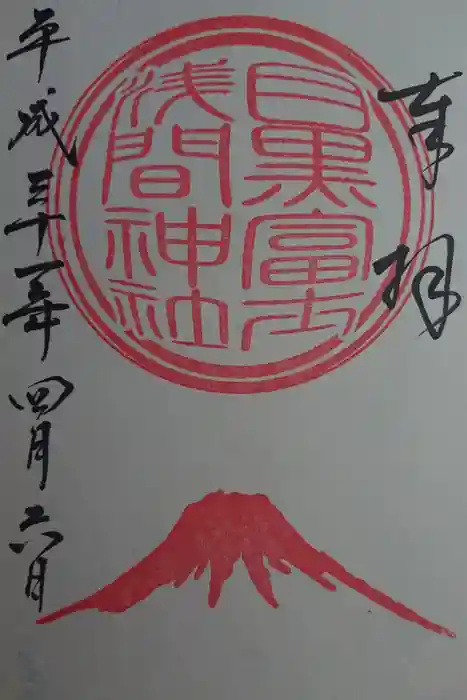 奉拝
目黒富士
浅間神社
平成三十一年四月六日